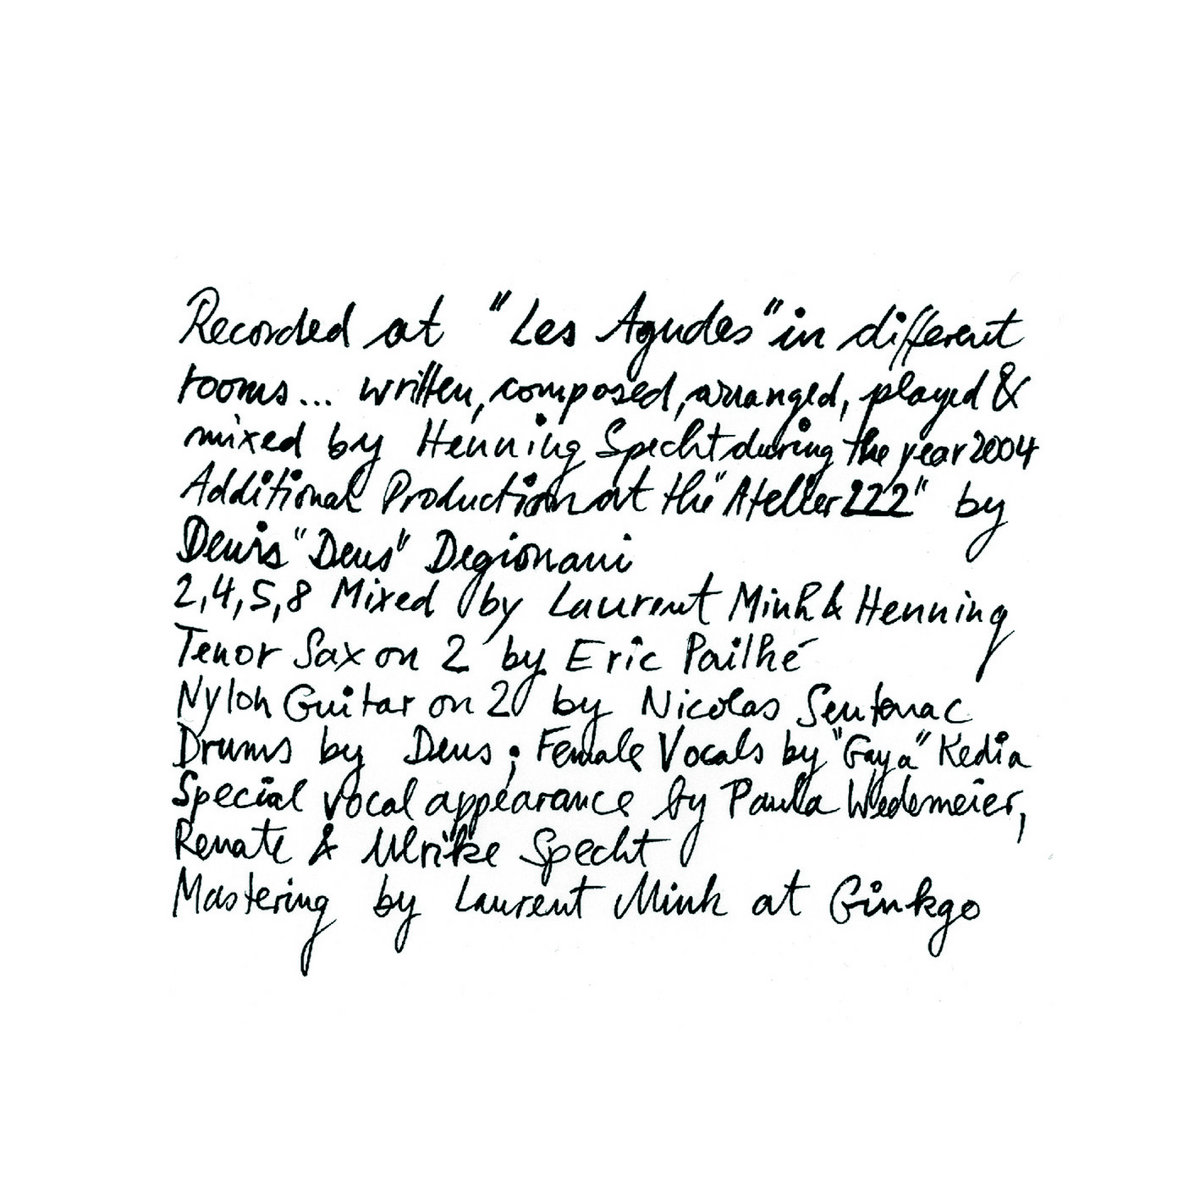 Recorded at "Les Agudes" in different
rooms... written, composed, arranged, played &
mixed by Henning Specht during the year 2004
Additional Production at the "Atelier 222" by
Denis "Deus" Degionani
2,4,5,8 Mixed by Laurent Mink & Henning
Tenor Sax on 2 by Eric Pailhé
Nylon Guitar on 2 by Nicolas Sentenac
Drums by Deus; Female Vocals by "Gaya" Kedia
Special vocal appearance by Paula Wedemeier,
Renate & Ulrike Specht
Mastering by Laurent Mink at Ginkgo